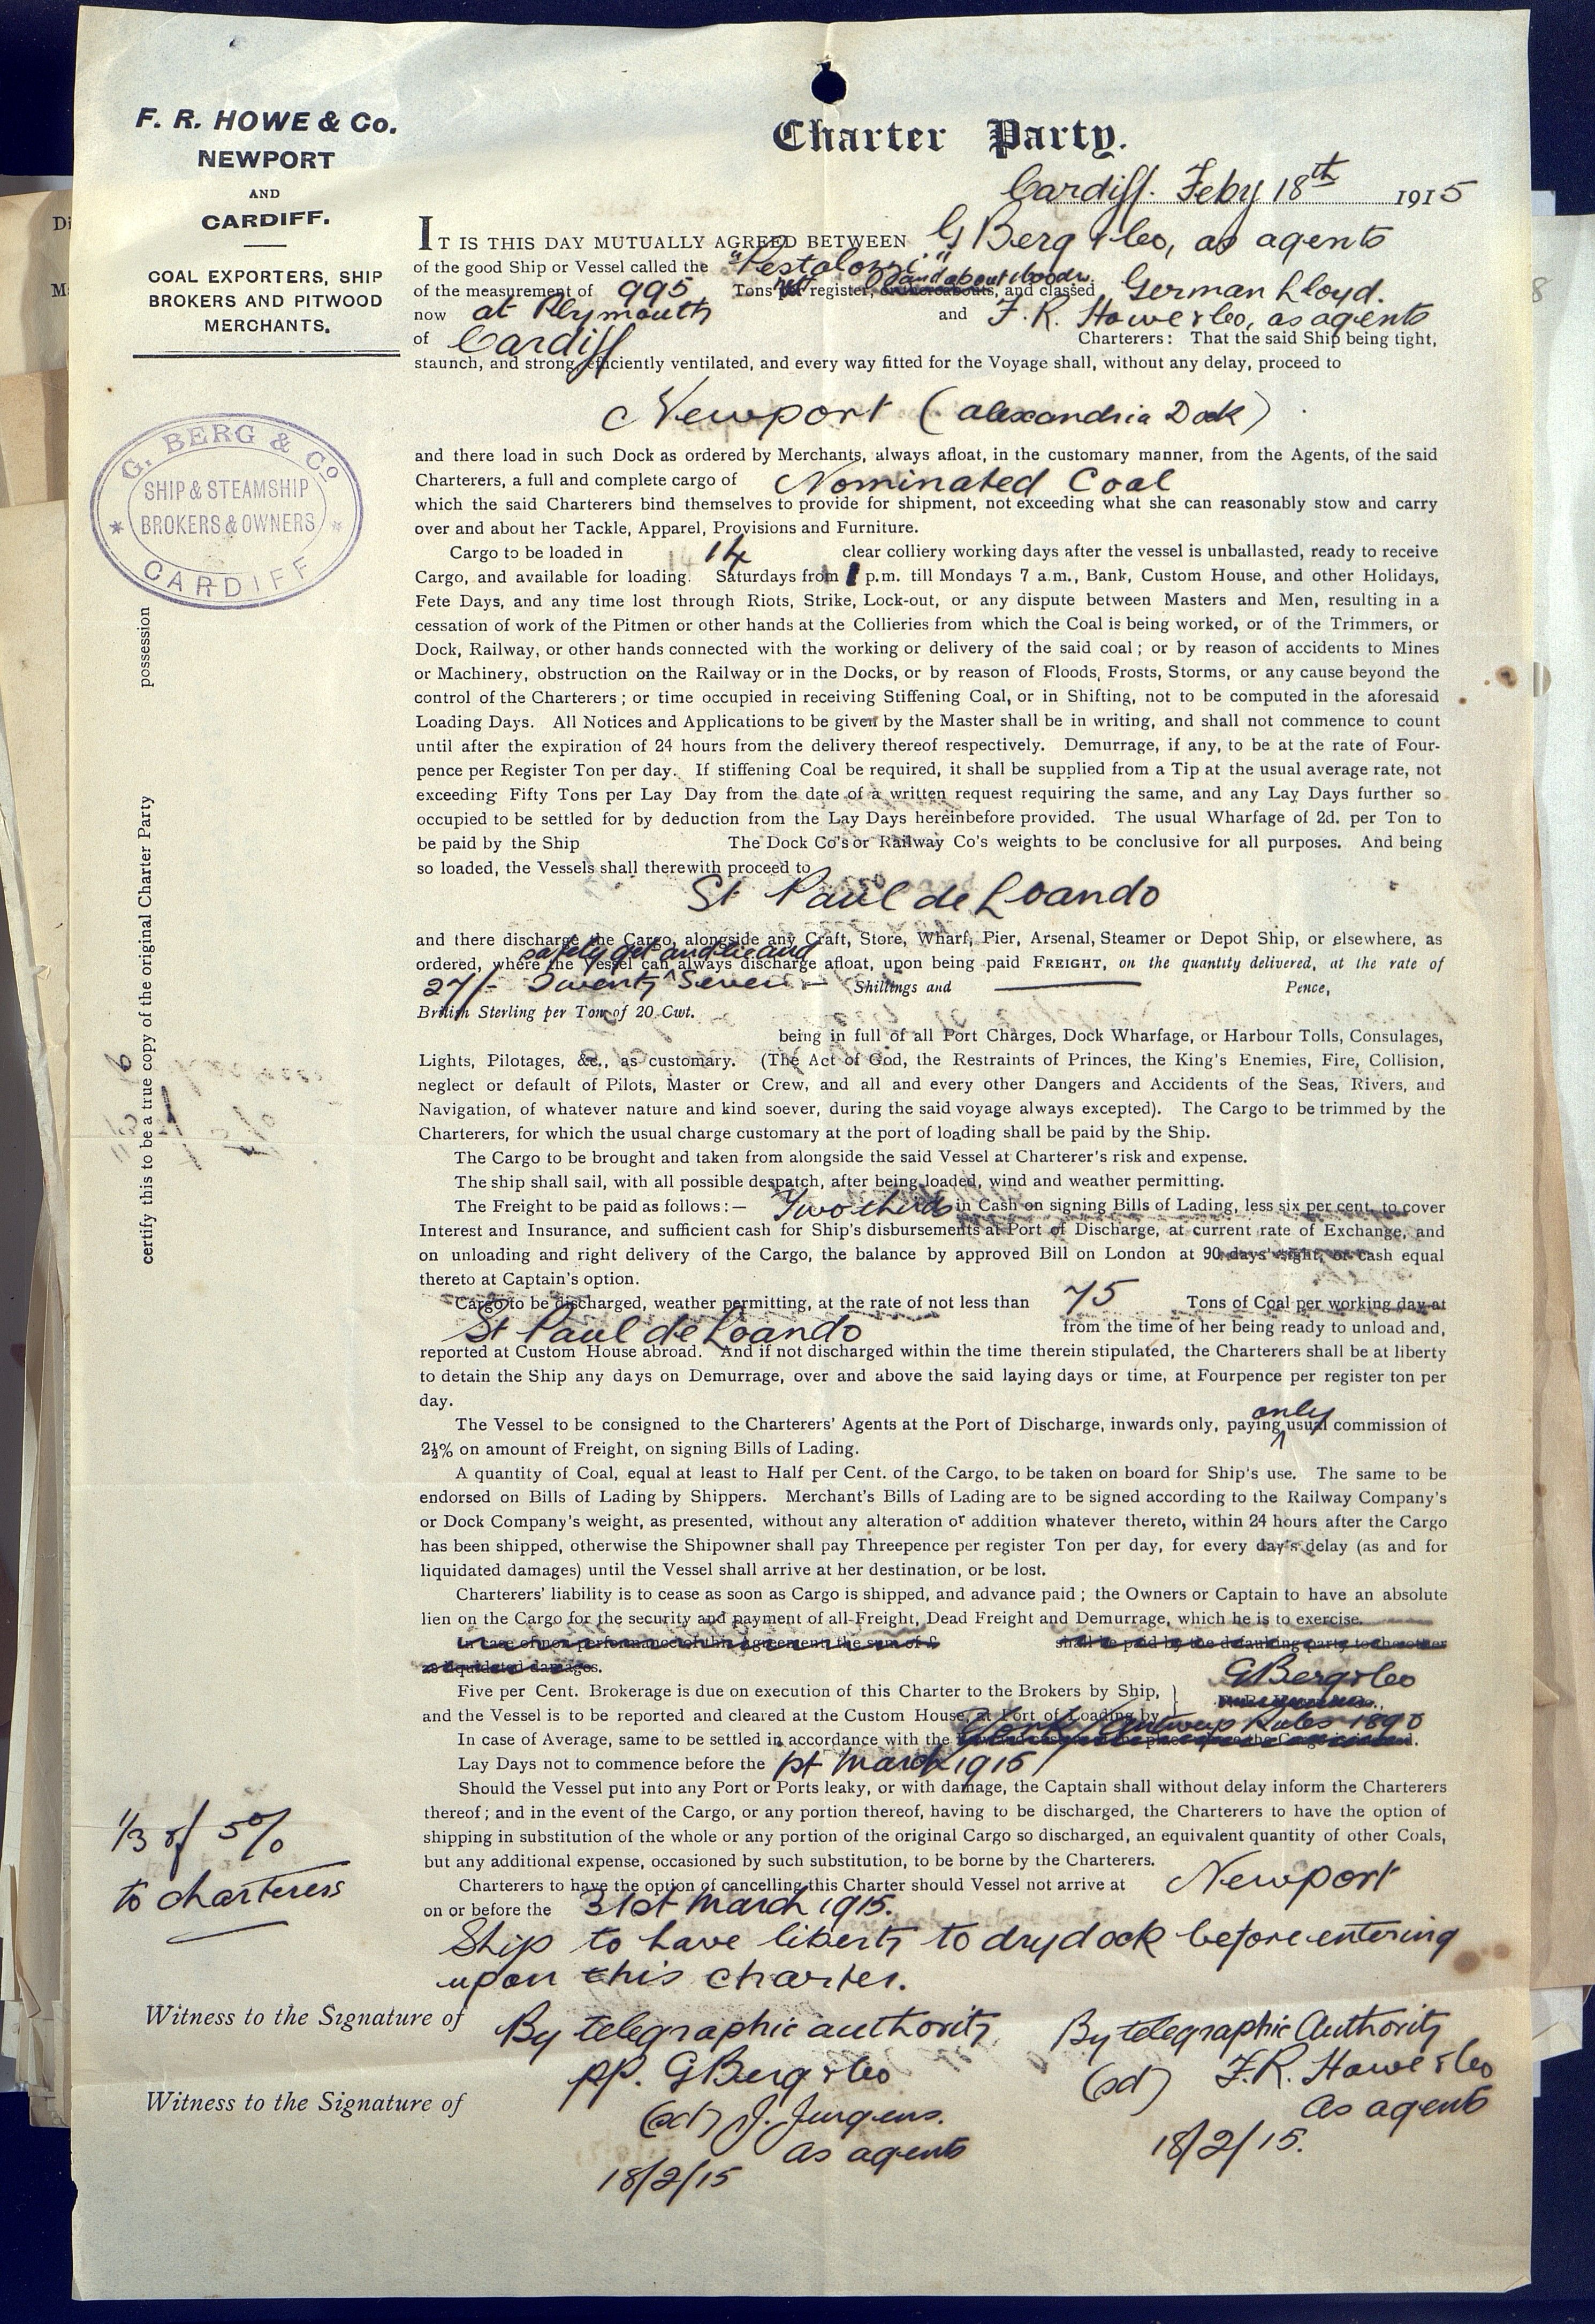 F. R. HOWE & Co.
NEWPORT
AND
CARDIFF.
COAL EXPORTERS, SHIP
BROKERS AND PITWOOD
MERCHANTS.
G. BERG & Co
SHIP & STEAMSHIP
BROKERS & OWNERS
CARDIFF
certify this to be a true copy of the original Charter Party possession
Charter Party.
Cardiff. Feby 18th 1915
IT IS THIS DAY MUTUALLY AGREED BETWEEN G Berg & Co, as agents
of the good Ship or Vessel called the "Pestalozzi"
of the measurement of 995 Tons nett register, or thereabouts, and classed German Lloyd.
now at Plymouth and F. R. Howe & Co, as agents
of Cardiff Charterers: That the said Ship being tight,
staunch, and strong, efficiently ventilated, and every way fitted for the Voyage shall, without any delay, proceed to
Newport (alexandria Dock)
and there load in such Dock as ordered by Merchants, always afloat, in the customary manner, from the Agents, of the said
Charterers, a full and complete cargo of Nominated Coal
which the said Charterers bind themselves to provide for shipment, not exceeding what she can reasonably stow and carry
over and about her Tackle, Apparel, Provisions and Furniture.
Cargo to be loaded in 14 clear colliery working days after the vessel is unballasted, ready to receive
Cargo, and available for loading. Saturdays from 1 p.m. till Mondays 7 a.m., Bank, Custom House, and other Holidays,
Fete Days, and any time lost through Riots, Strike, Lock-out, or any dispute between Masters and Men, resulting in a
cessation of work of the Pitmen or other hands at the Collieries from which the Coal is being worked, or of the Trimmers, or
Dock, Railway, or other hands connected with the working or delivery of the said coal; or by reason of accidents to Mines
or Machinery, obstruction on the Railway or in the Docks, or by reason of Floods, Frosts, Storms, or any cause beyond the
control of the Charterers; or time occupied in receiving Stiffening Coal, or in Shifting, not to be computed in the aforesaid
Loading Days. All Notices and Applications to be given by the Master shall be in writing, and shall not commence to count
until after the expiration of 24 hours from the delivery thereof respectively. Demurrage, if any, to be at the rate of Four-
pence per Register Ton per day. If stiffening Coal be required, it shall be supplied from a Tip at the usual average rate, not
exceeding Fifty Tons per Lay Day from the date of a written request requiring the same, and any Lay Days further so
occupied to be settled for by deduction from the Lay Days hereinbefore provided. The usual Wharfage of 2d. per Ton to
be paid by the Ship The Dock Co's or Railway Co's weights to be conclusive for all purposes. And being
so loaded, the Vessels shall therewith proceed to
St Paul de Loando
and there discharge the Cargo, alongside any Craft, Store, Wharf, Pier, Arsenal, Steamer or Depot Ship, or elsewhere, as
safely get and lie and
ordered, where the Vessel can always discharge afloat, upon being paid FREIGHT, on the quantity delivered, at the rate of
27/- Twenty Seven — Shillings and — Pence,
British Sterling per Ton of 20 Cwt.
being in full of all Port Charges, Dock Wharfage, or Harbour Tolls, Consulages,
Lights, Pilotages, &c., as customary. (The Act of God, the Restraints of Princes, the King's Enemies, Fire, Collision,
neglect or default of Pilots, Master or Crew, and all and every other Dangers and Accidents of the Seas, Rivers, and
Navigation, of whatever nature and kind soever, during the said voyage always excepted). The Cargo to be trimmed by the
Charterers, for which the usual charge customary at the port of loading shall be paid by the Ship.
The Cargo to be brought and taken from alongside the said Vessel at Charterer's risk and expense.
The ship shall sail, with all possible despatch, after being loaded, wind and weather permitting.
The Freight to be paid as follows:— Two thirds in Cash on signing Bills of Lading, less six per cent. to cover
Interest and Insurance, and sufficient cash for Ship's disbursements at Port of Discharge, at current rate of Exchange, and
on unloading and right delivery of the Cargo, the balance by approved Bill on London at 90 days' sight, or cash equal
thereto at Captain's option.
Cargo to be discharged, weather permitting, at the rate of not less than 75 Tons of Coal per working day at
St Paul de Loando from the time of her being ready to unload and,
reported at Custom House abroad. And if not discharged within the time therein stipulated, the Charterers shall be at liberty
to detain the Ship any days on Demurrage, over and above the said laying days or time, at Fourpence per register ton per
day.
The Vessel to be consigned to the Charterers' Agents at the Port of Discharge, inwards only, paying only usual commission of
2½% on amount of Freight, on signing Bills of Lading.
A quantity of Coal, equal at least to Half per Cent. of the Cargo, to be taken on board for Ship's use. The same to be
endorsed on Bills of Lading by Shippers. Merchant's Bills of Lading are to be signed according to the Railway Company's
or Dock Company's weight, as presented, without any alteration or addition whatever thereto, within 24 hours after the Cargo
has been shipped, otherwise the Shipowner shall pay Threepence per register Ton per day, for every day's delay (as and for
liquidated damages) until the Vessel shall arrive at her destination, or be lost.
Charterers' liability is to cease as soon as Cargo is shipped, and advance paid; the Owners or Captain to have an absolute
lien on the Cargo for the security and payment of all Freight, Dead Freight and Demurrage, which he is to exercise.
In case of non performance of this Agreement the sum of £ shall be paid by the defaulting party to the other
as liquidated damages.
Five per Cent. Brokerage is due on execution of this Charter to the Brokers by Ship, } G Berg & Co
and the Vessel is to be reported and cleared at the Custom House, at Port of Loading by
In case of Average, same to be settled in accordance with the York/Antwerp Rules 1890
Lay Days not to commence before the 1st March 1915
Should the Vessel put into any Port or Ports leaky, or with damage, the Captain shall without delay inform the Charterers
thereof; and in the event of the Cargo, or any portion thereof, having to be discharged, the Charterers to have the option of
shipping in substitution of the whole or any portion of the original Cargo so discharged, an equivalent quantity of other Coals,
but any additional expense, occasioned by such substitution, to be borne by the Charterers.
Charterers to have the option of cancelling this Charter should Vessel not arrive at Newport
on or before the 31st March 1915.
1/3 of 5%
to charterers
Ship to have liberty to drydock before entering
upon this charter.
Witness to the Signature of
By telegraphic authority
pp. G Berg & Co
(sd) J. Jurgens.
as agents
18/2/15
By telegraphic Authority
(sd) F.R. Howe & Co
As agents
18/2/15.
Witness to the Signature of